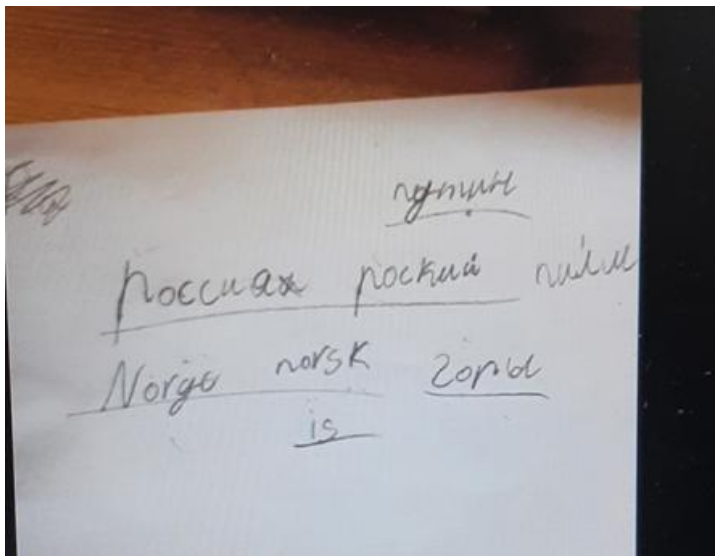 путин
россиах роский
Norge norsk горы
is